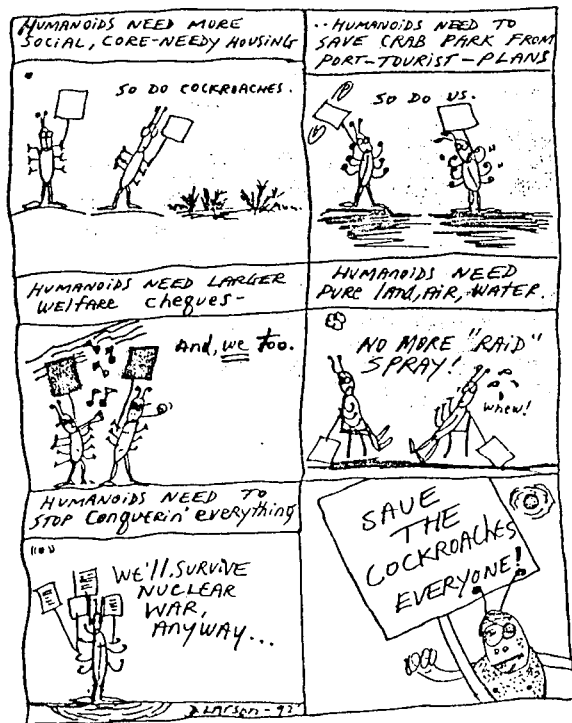 HUMANOIDS NEED MORE
SOCIAL, CORE-NEEDY HOUSING
SO DO COCKROACHES.
··HUMANOIDS NEED TO
SAVE CRAB PARK FROM
PORT-TOURIST-PLANS
SO DO US.
HUMANOIDS NEED LARGER
WELFARE cheques-
And, we too.
HUMANOIDS NEED
PURE land, AIR, WATER.
NO MORE "RAID"
SPRAY!
whew!
HUMANOIDS NEED TO
STOP Conquerin' everything
WE'll SURVIVE
NUCLEAR
WAR,
ANYWAY...
SAVE
THE
COCKROACHES
EVERYONE!